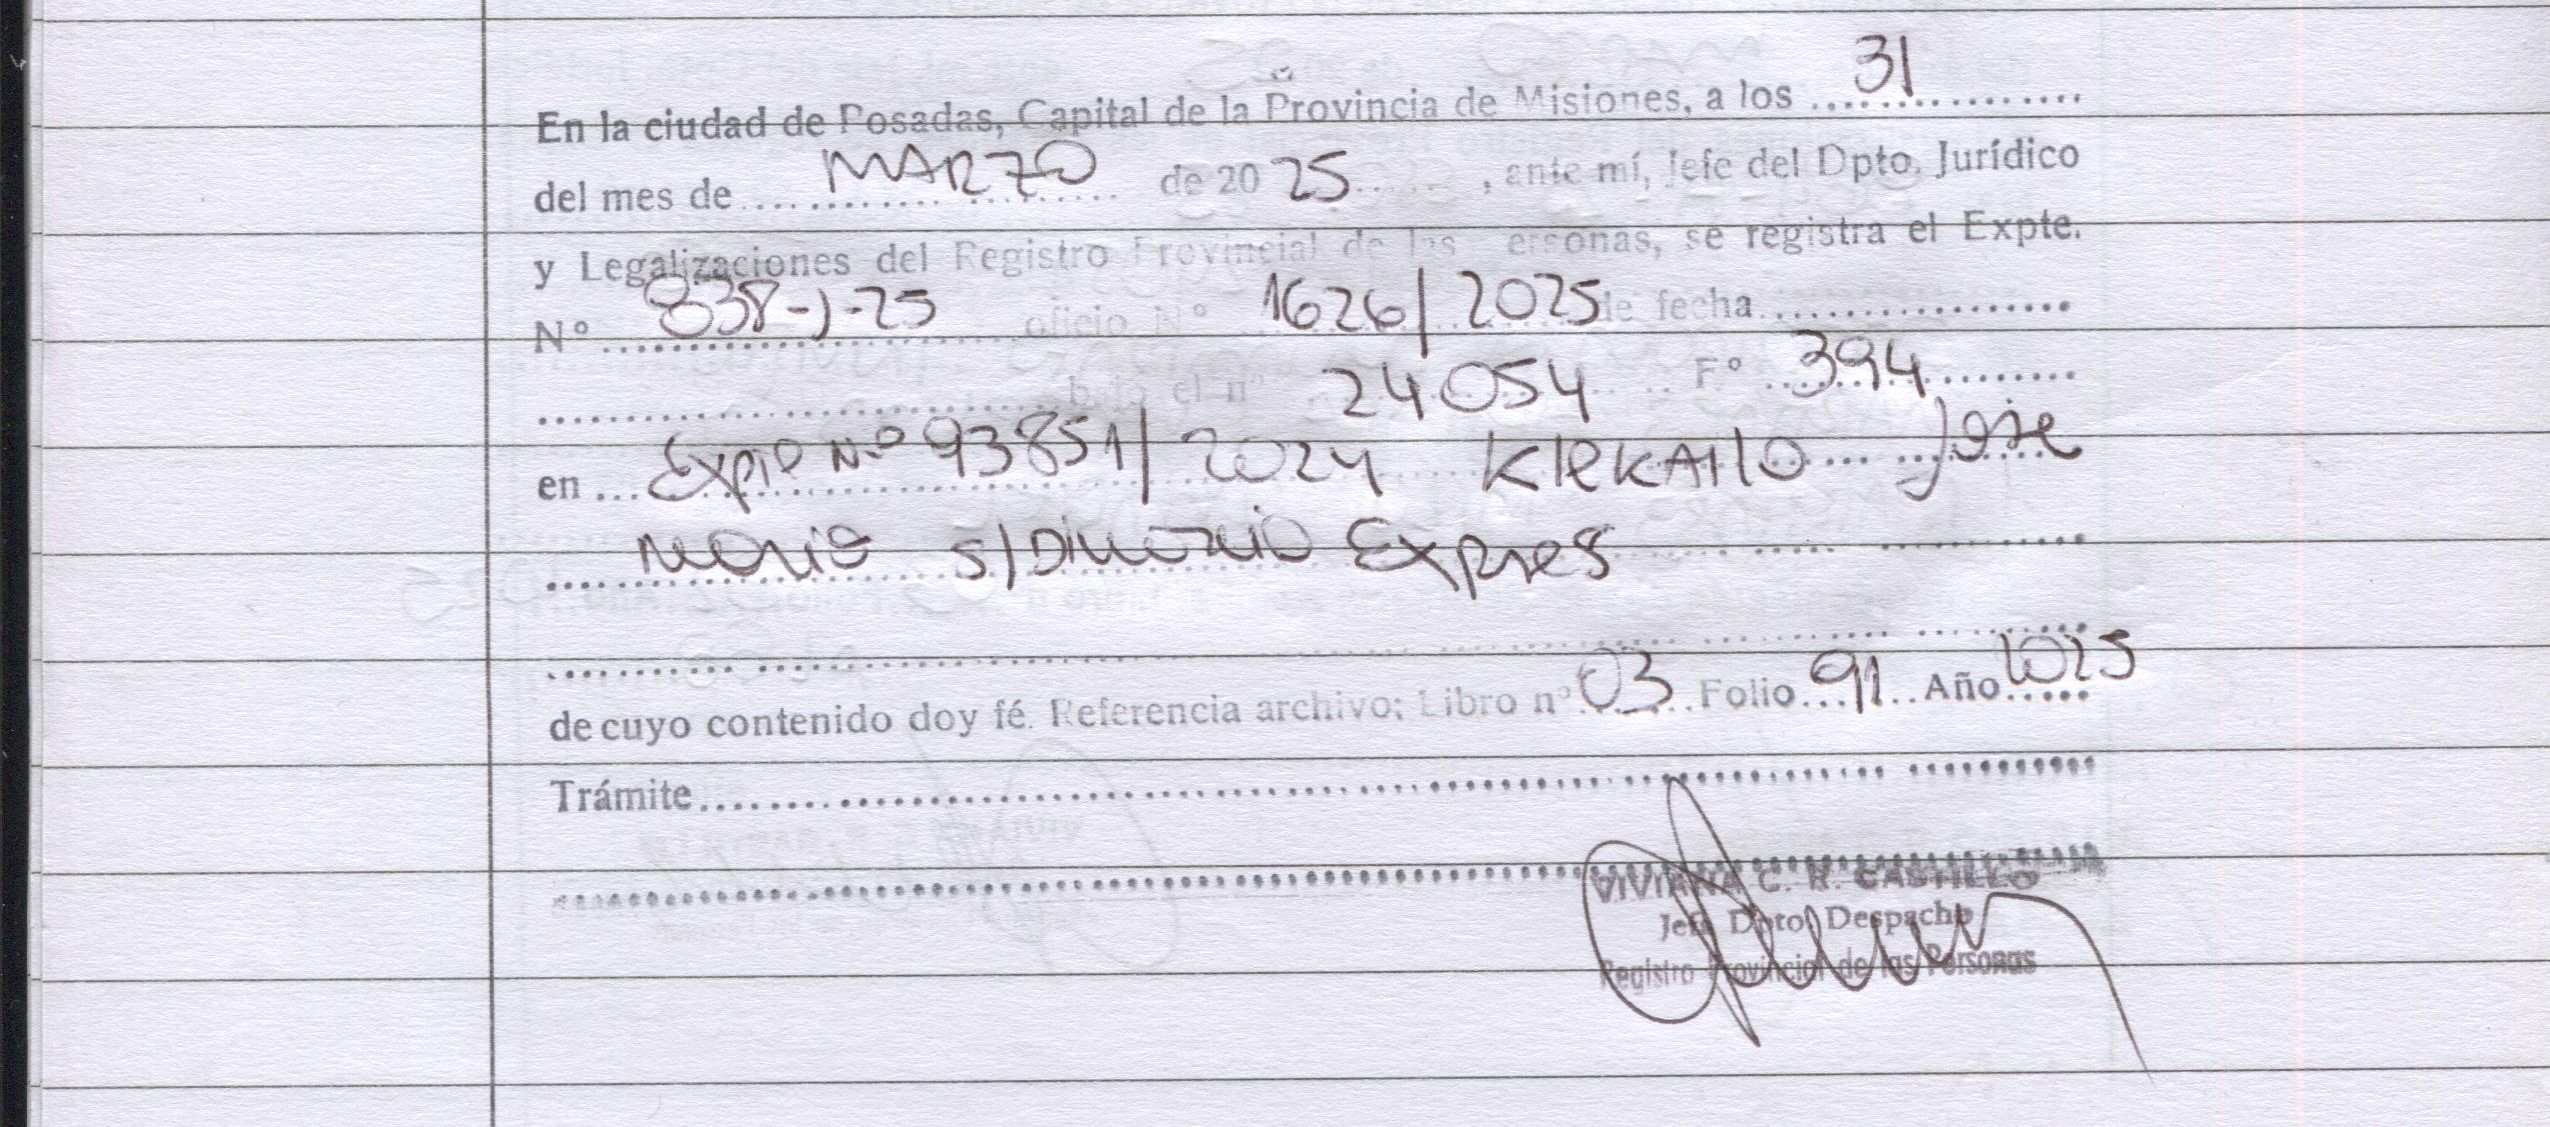 En la ciudad de Posadas, Capital de la Provincia de Misiones, a los 31
del mes de MARZO de 20 25, ante mí, Jefe del Dpto. Jurídico
y Legalizaciones del Registro Provincial de las ersonas, se registra el Expte.
Nº 838-J-25 oficio Nº 1626/2025 de fecha
bajo el nº 24054 Fº 394
en Expte Nº 93851/2024 José
Mario s/Divorcio Expres
de cuyo contenido doy fé. Referencia archivo: Libro nº 03 Folio 91 Año 2025
Trámite
VIVIANA C. R. CASTILLO
Jefe Dpto. Despacho
Registro Provincial de las Personas